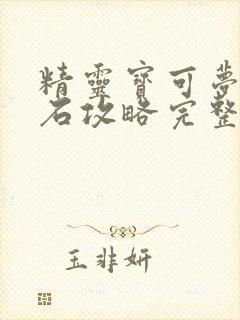 精靈寶可夢
石攻略完整
玉非妍